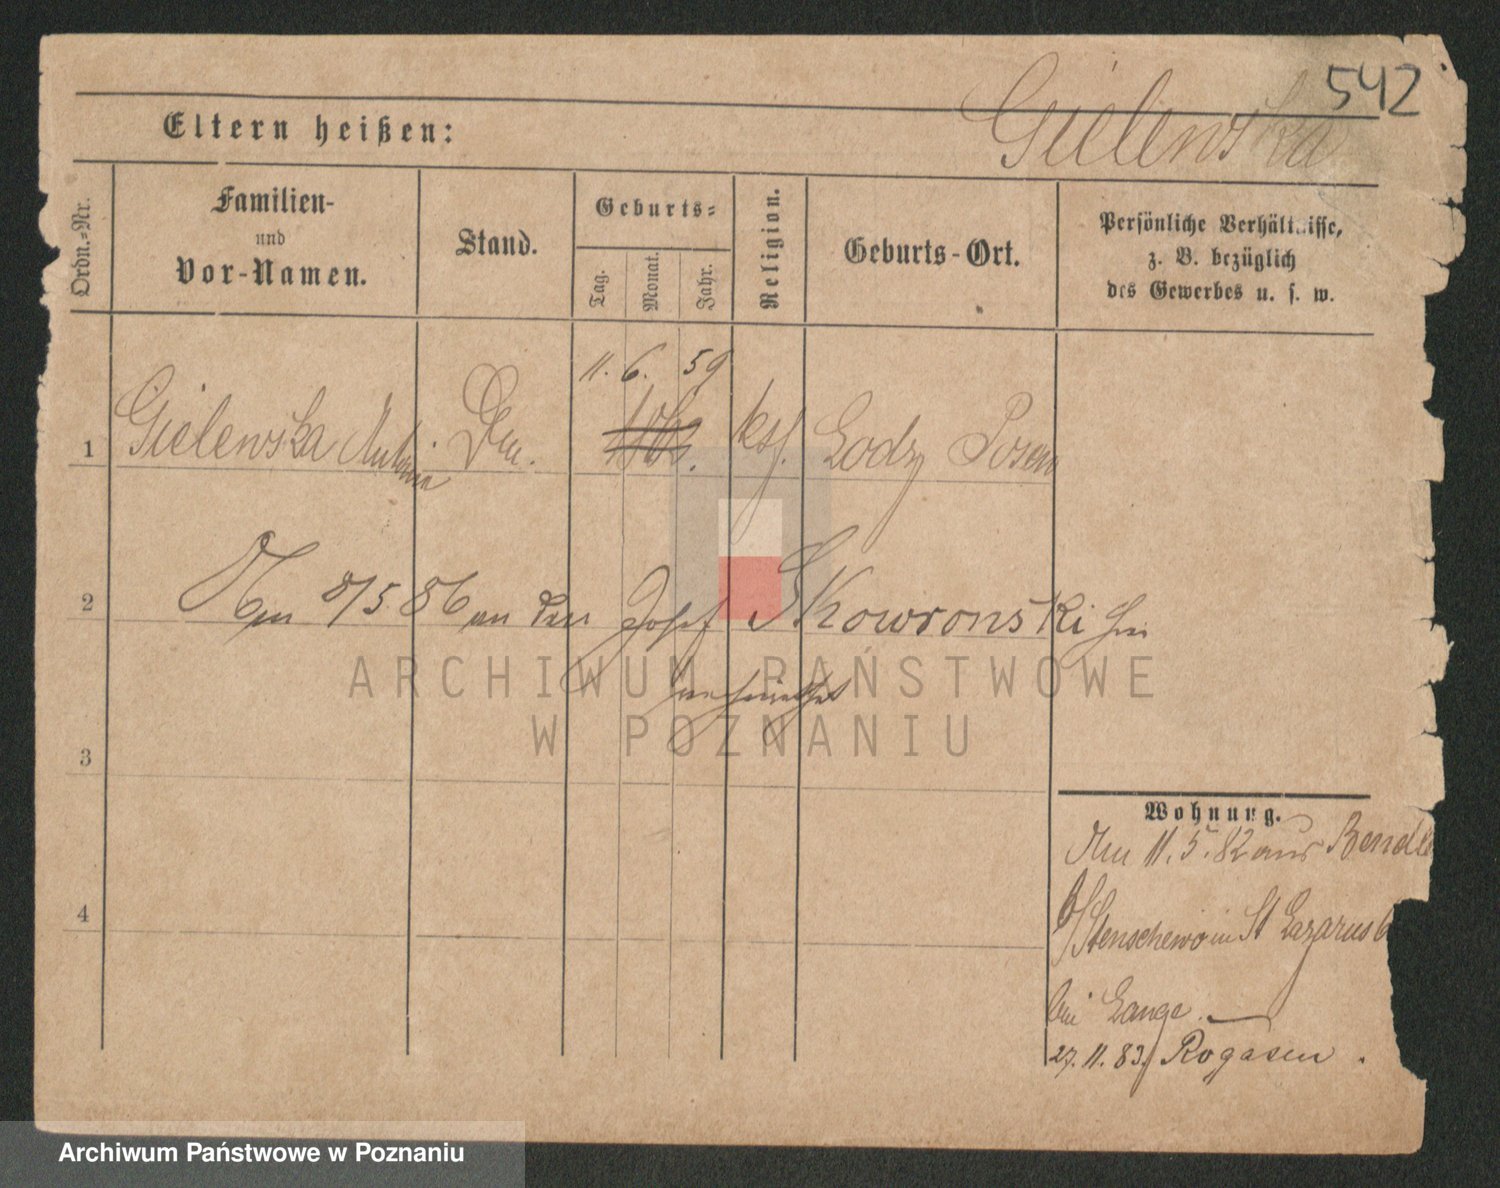 542
Gielewska
Eltern heißen:
Ordn.-Nr.
Familien-
und
Vor-Namen.
Stand.
Geburts-
Tag.
Monat.
Jahr.
Religion.
Geburts-Ort.
Persönliche Verhältnisse,
z. B. bezüglich
des Gewerbes u. s. w.
11. 6. 59
1 Gielewska Antonia ksf. Lodz Posen
2 8/5 86 an den Josef Skowronski
verheirathet
3
4
Wohnung.
Am 11. 5. 82 aus
b/Stenschewo in St Lazarus 6
bei Lange.
27. 11. 83. Rogasen.
ARCHIWUM PAŃSTWOWE
W POZNANIU
Archiwum Państwowe w Poznaniu